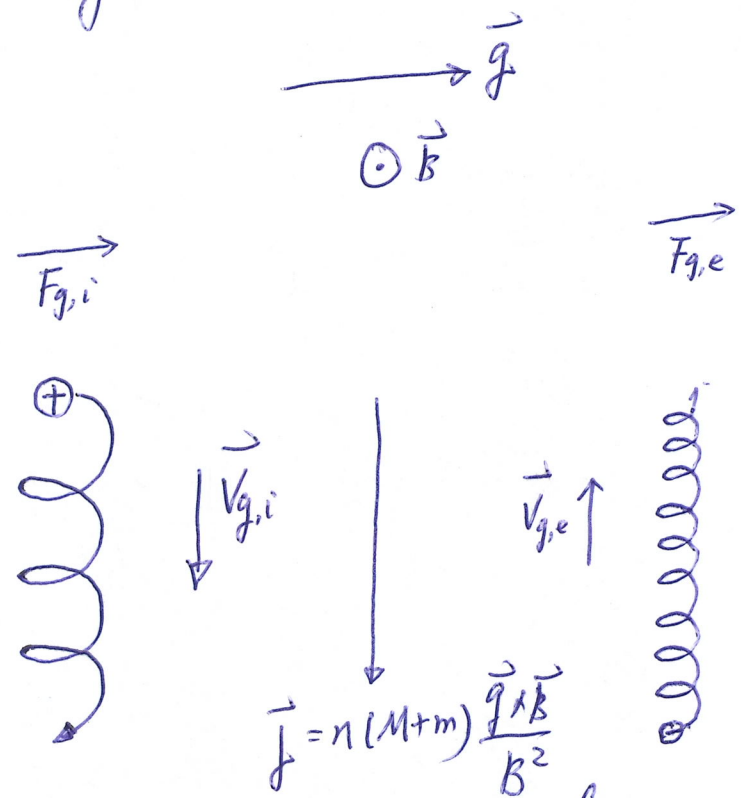 g⃗
⊙ B⃗
F_{g,i}
F_{g,e}
⊕
V⃗_{g,i}
V⃗_{g,e}
⊖
j⃗ = n(M+m) g⃗×B⃗ / B²